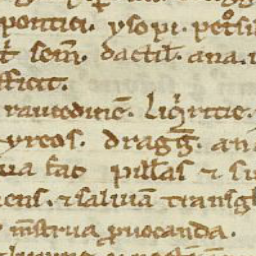 pontici. ysopi. petrosi
t sem̅. dactil̅. ana.
fficit.
raucedine̅. Liq̓ritie.
yreos. dragg̅. an
ua fac pill̅as ⁊ su
ens. ⁊ saliua̅ transgl
me̅strua ꝓuocanda.